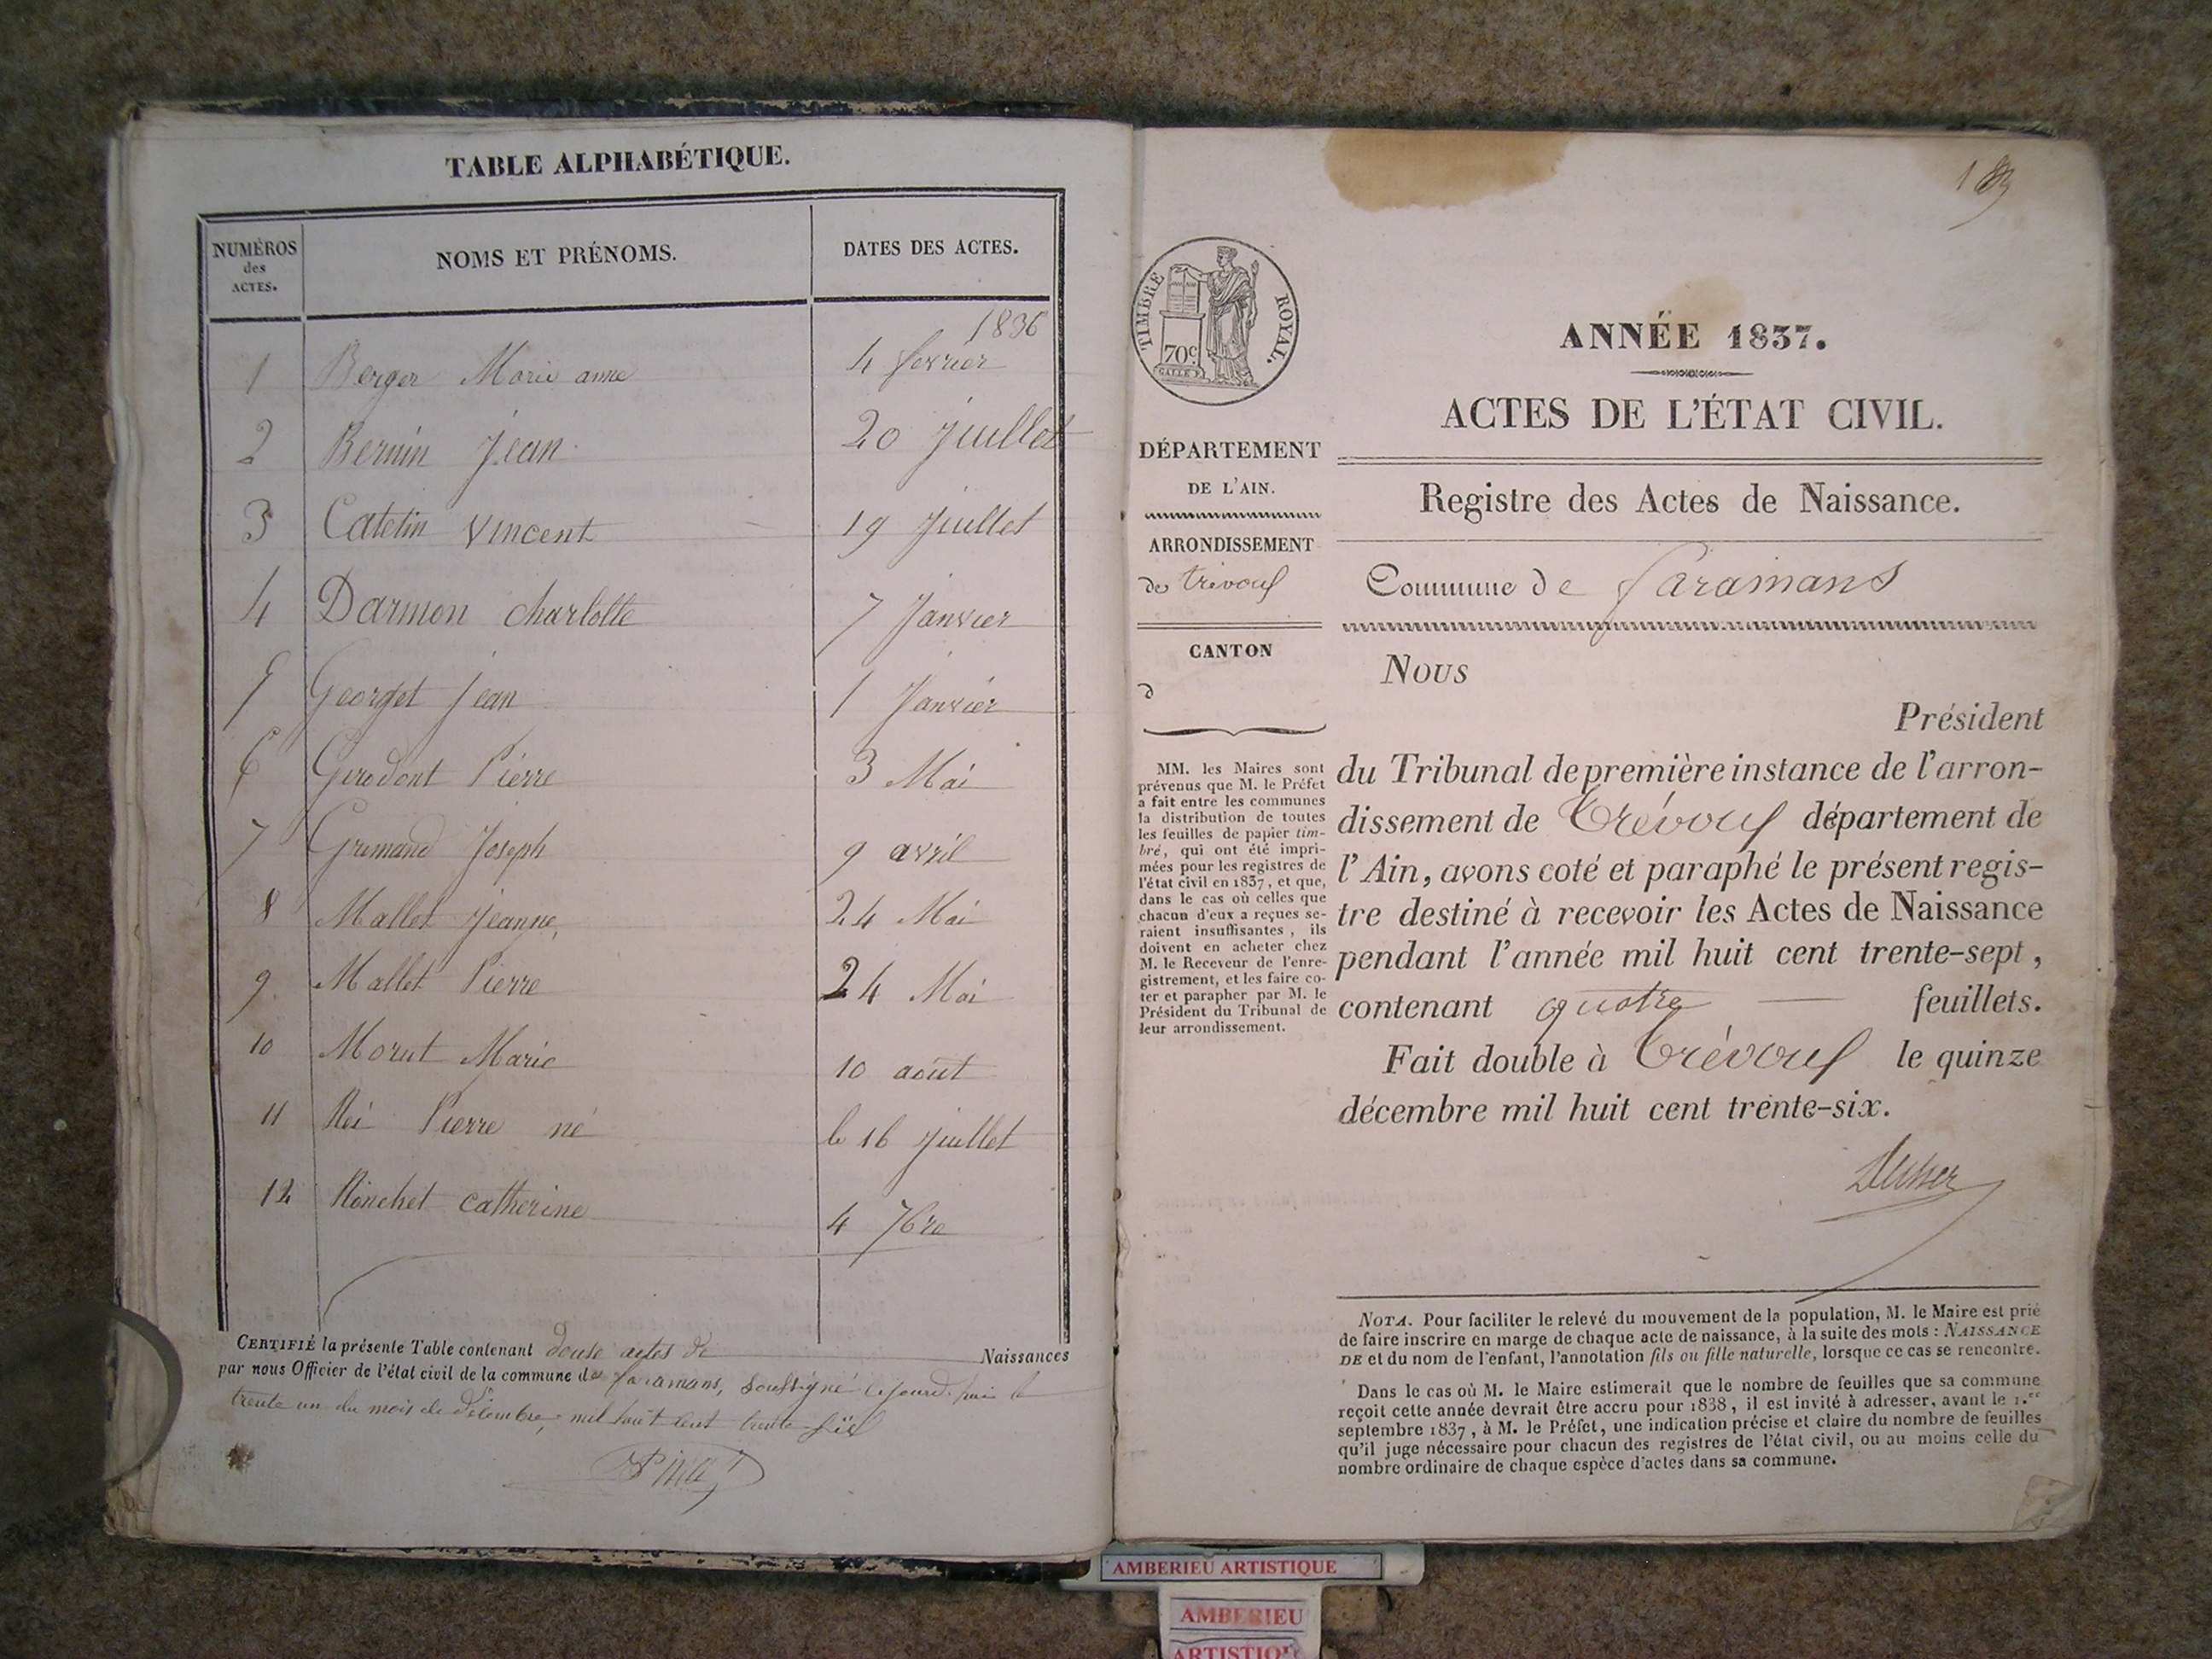 TABLE ALPHABÉTIQUE.
NUMÉROS
des
ACTES.
NOMS ET PRÉNOMS.
DATES DES ACTES.
1836
1 Berger Marie anne 4 fevrier
2 Bernin Jean 20 Juillet
3 Catetin Vincent 19 Juillet
4 Darmon charlotte 7 Janvier
5 Georget Jean 1 Janvier
6 Girodont Pierre 3 Mai
7 Grimand Joseph 9 avril
8 Mallet Jeanne, 24 Mai
9 Mallet Pierre 24 Mai
10 Morut Marie 10 août
11 Rei Pierre né le 16 Juillet
12 Ronchet catherine 4 7bre
CERTIFIÉ la présente Table contenant douse actes de Naissances
par nous Officier de l'état civil de la commune de faramans, Soussigné le trente un du mois de Décembre, mil huit cent trente-six
ANNÉE 1837.
ACTES DE L'ÉTAT CIVIL.
Registre des Actes de Naissance.
Commune de faramans
TIMBRE ROYAL.
70c
DÉPARTEMENT
DE L'AIN.
ARRONDISSEMENT
de trévoux
CANTON
d
MM. les Maires sont
prévenus que M. le Préfet
a fait entre les communes
la distribution de toutes
les feuilles de papier tim-
bré, qui ont été impri-
mées pour les registres de
l'état civil en 1837, et que,
dans le cas où celles que
chacun d'eux a reçues se-
raient insuffisantes, ils
doivent en acheter chez
M. le Receveur de l'enre-
gistrement, et les faire co-
ter et parapher par M. le
Président du Tribunal de
leur arrondissement.
Nous
Président
du Tribunal de première instance de l'arron-
dissement de Trévoux département de
l'Ain, avons coté et paraphé le présent regis-
tre destiné à recevoir les Actes de Naissance
pendant l'année mil huit cent trente-sept,
contenant quatre feuillets.
Fait double à Trévoux le quinze
décembre mil huit cent trente-six.
NOTA. Pour faciliter le relevé du mouvement de la population, M. le Maire est prié
de faire inscrire en marge de chaque acte de naissance, à la suite des mots : NAISSANCE
DE et du nom de l'enfant, l'annotation fils ou fille naturelle, lorsque ce cas se rencontre.
Dans le cas où M. le Maire estimerait que le nombre de feuilles que sa commune
reçoit cette année devrait être accru pour 1838, il est invité à adresser, avant le 1.er
septembre 1837, à M. le Préfet, une indication précise et claire du nombre de feuilles
qu'il juge nécessaire pour chacun des registres de l'état civil, ou au moins celle du
nombre ordinaire de chaque espèce d'actes dans sa commune.
AMBERIEU ARTISTIQUE
AMBERIEU
ARTISTIQUE